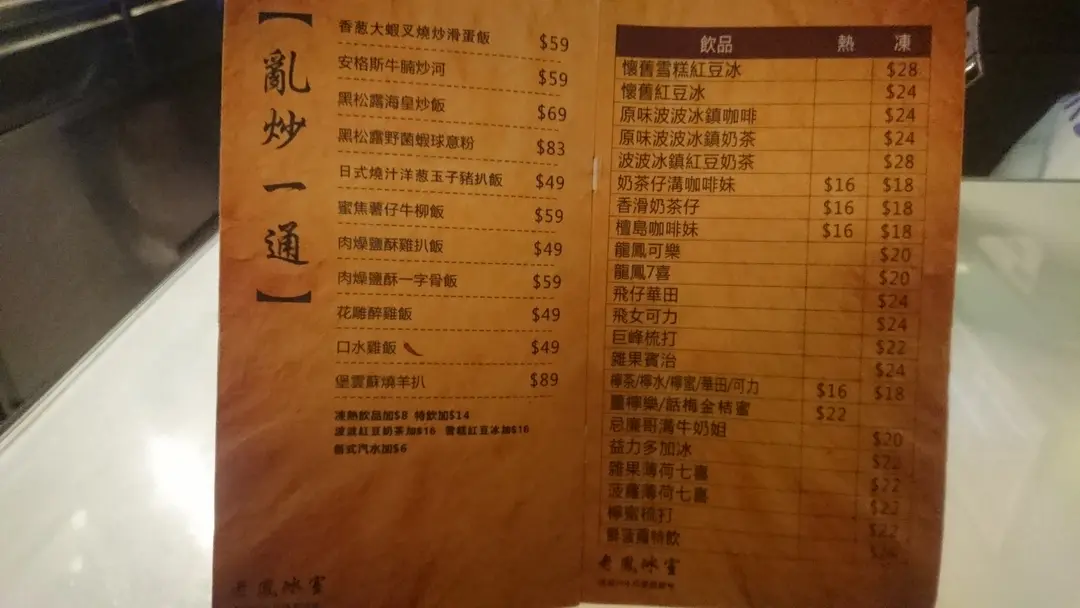 【亂炒一通】
香葱大蝦叉燒炒滑蛋飯 $59
安格斯牛腩炒河 $59
黑松露海皇炒飯 $69
黑松露野菌蝦球意粉 $83
日式燒汁洋葱玉子豬扒飯 $49
蜜焦薯仔牛柳飯 $59
肉燥鹽酥雞扒飯 $49
肉燥鹽酥一字骨飯 $59
花雕醉雞飯 $49
口水雞飯 $49
堡雲蘇燒羊扒 $89
凍熱飲品加$8 特飲加$14
波波紅豆奶茶加$16 雪糕紅豆冰加$16
舊式汽水加$6
老鳳冰室
飲品 熱 凍
懷舊雪糕紅豆冰 $28
懷舊紅豆冰 $24
原味波波冰鎮咖啡 $24
原味波波冰鎮奶茶 $24
波波冰鎮紅豆奶茶 $28
奶茶仔溝咖啡妹 $16 $18
香滑奶茶仔 $16 $18
檀島咖啡妹 $16 $18
龍鳳可樂 $20
龍鳳7喜 $20
飛仔華田 $24
飛女可力 $24
巨峰梳打 $22
雜果賓治 $24
檸茶/檸水/檸蜜/華田/可力 $16 $18
薑檸樂/話梅金桔蜜 $22
忌廉哥溝牛奶姐 $20
益力多加冰 $22
雜果薄荷七喜 $22
菠蘿薄荷七喜 $22
檸蜜梳打 $22
菠蘿特飲
老鳳冰室